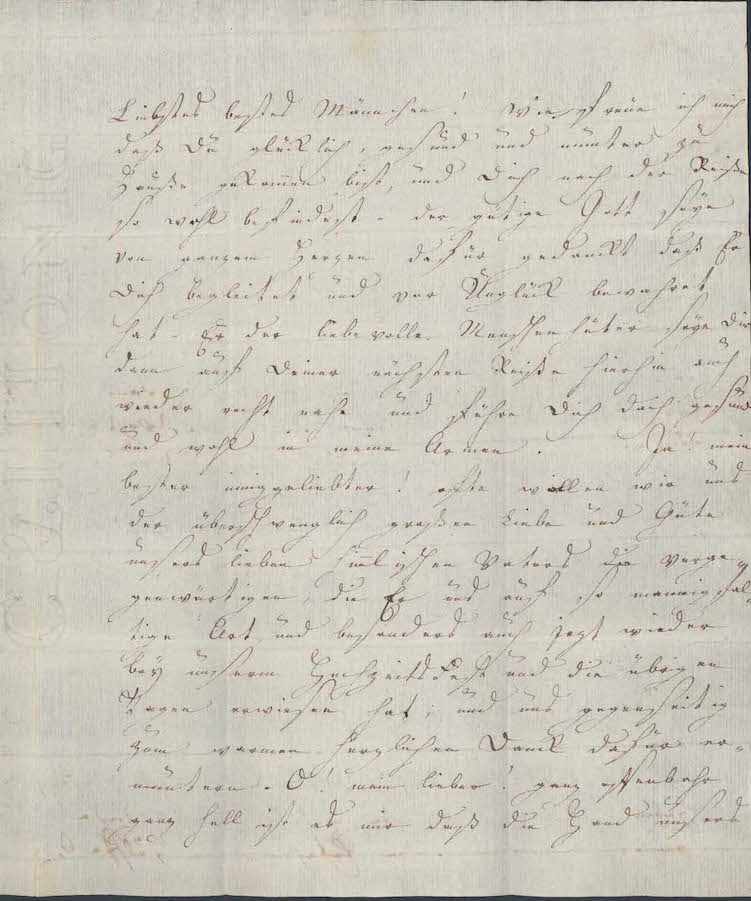 Liebstes bestes Männchen! Wie freue ich mich
daß Du glücklich, gesund und munter zu
Hauße gekommen bist, und Dich nach der Reiße
so wohl befindest - der gütige Gott seye
von ganzem Herzen dafür gedanckt daß Er
Dich begleitet und vor Unglück bewahret
hat - Er der liebevolle Menschenhüter seye Dir
dann auf Deiner nächsten Reiße hierhin auch
wieder recht nahe und führe Dich doch gesund
und wohl in meine Armen. Ja mein
bester inniggeliebter! ofte wollen wir uns
der überschwenglich großen Liebe und Güte
unsers lieben himlischen Vaters die verge¬
genwärtigen, die Er uns auf so mannigfal¬
tige Art und besonders auch jezt wieder
bey unserm Hochzeits Fest und die übrigen
Tagen erwiesen hat, und uns gegenseitig
zum warmen herzlichen Danck dafür er¬
muntern. O! mein lieber! ganz offenbahr
ganz hell ist es mir daß die Hand unsers